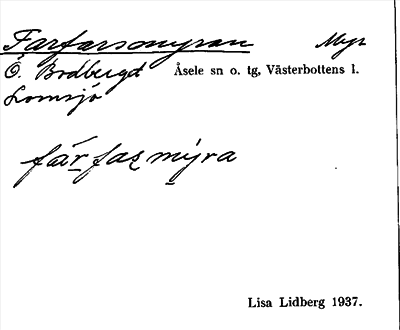 Farfarsmyran Myr
Ö. Bodberget Åsele sn o. tg, Västerbottens l.
Lomsjö
fárfas mýra
Lisa Lidberg 1937.